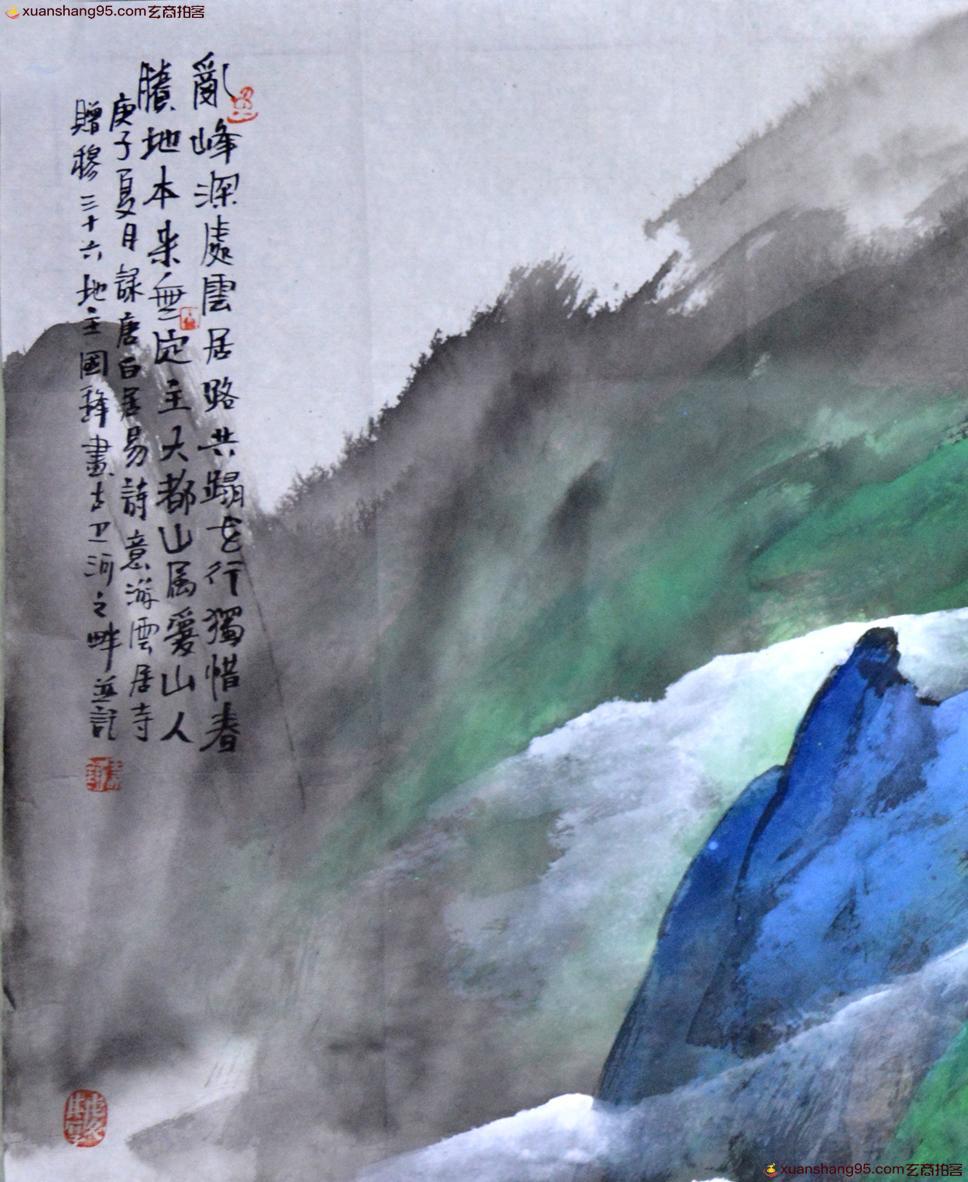 xuanshang95.com玄商拍客
亂峰深處雲居路共蹋花行獨惜春
勝地本來無定主大都山属愛山人
庚子夏月録唐白居易詩意游雲居寺
贈穆三十六地主國鋒畫古卫河之畔並記
xuanshang95.com玄商拍客